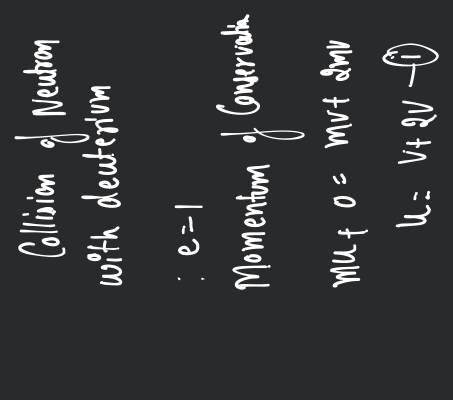 Collision of Neutron
with deuterium
: e = 1
Momentum of Conservatin
mu + 0 = mv + 2mv
u = v + 2v — ①